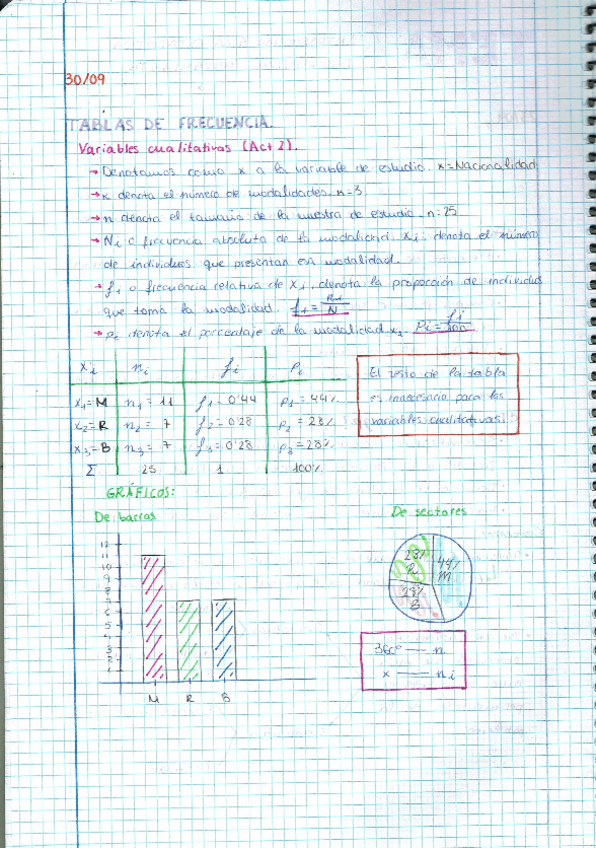 30/09
TABLAS DE FRECUENCIA.
Variables cualitativas (Act 2).
→ Denotamos como x a la variable de estudio. x = Nacionalidad
→ k denota el número de modalidades. n = 3.
→ n denota el tamaño de la muestra de estudio. n = 25
→ Ni o frecuencia absoluta de la modalidad xi: denota el número
de individuos que presentan esa modalidad.
→ f1 o frecuencia relativa de x1, denota la proporción de individuos
que toma la modalidad. f1 = n1/N
→ p1 denota el porcentaje de la modalidad x1. Pi = fi/100
xi ni fi Pi
x1 = M n1 = 11 f1 = 0'44 p1 = 44%
x2 = R n2 = 7 f2 = 0'28 p2 = 28%
x3 = B n3 = 7 f3 = 0'28 p3 = 28%
Σ 25 1 100%
El resto de la tabla
es innecesario para las
variables cualitativas.
GRÁFICOS:
De barras
De sectores
12
11
10
9
8
7
6
5
4
3
2
1
M R B
28%
R
44%
M
28%
B
360º — n
x — ni